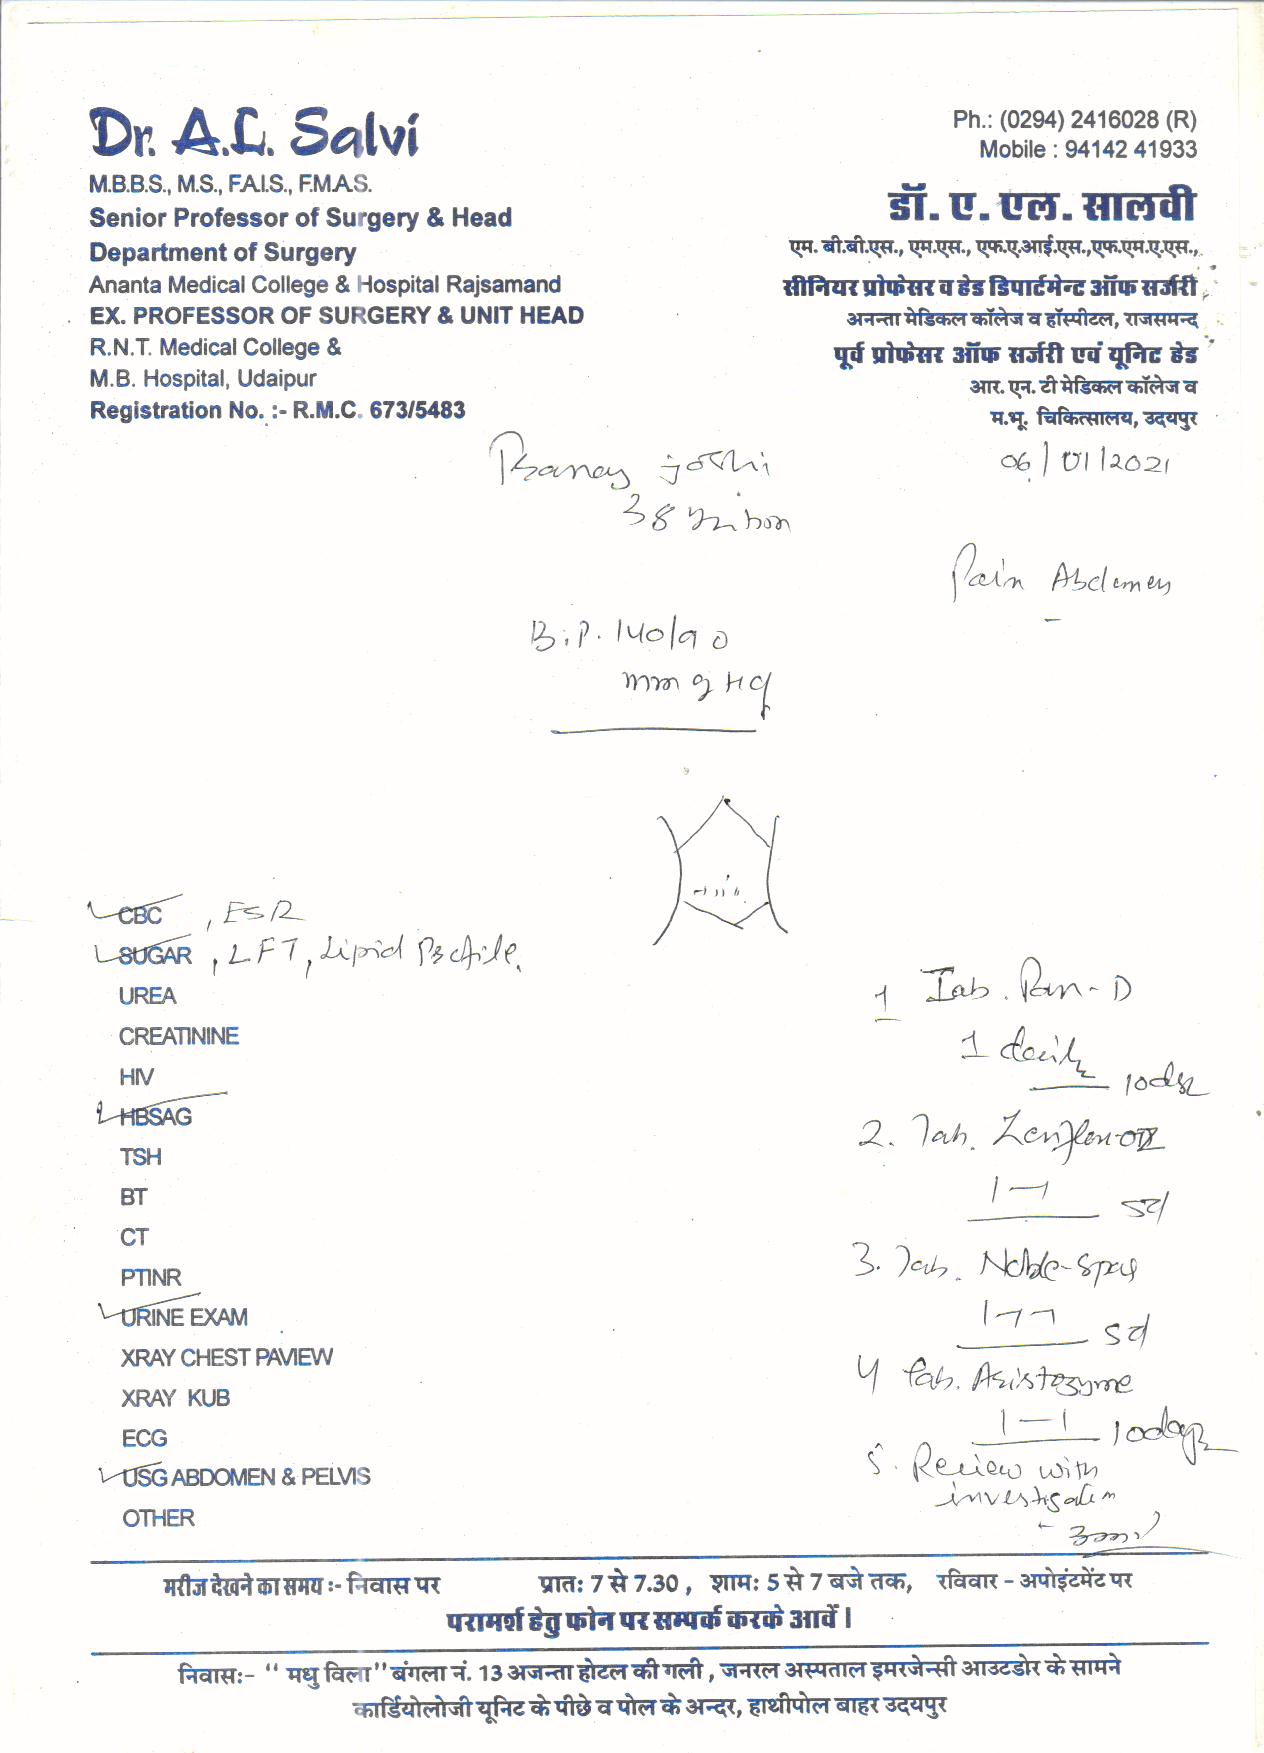 Dr. A.L. Salvi
M.B.B.S., M.S., F.A.I.S., F.M.A.S.
Senior Professor of Surgery & Head
Department of Surgery
Ananta Medical College & Hospital Rajsamand
EX. PROFESSOR OF SURGERY & UNIT HEAD
R.N.T. Medical College &
M.B. Hospital, Udaipur
Registration No. :- R.M.C. 673/5483
Ph.: (0294) 2416028 (R)
Mobile : 94142 41933
डॉ. ए. एल. सालवी
एम. बी.बी.एस., एम.एस., एफ.ए.आई.एस.,एफ.एम.ए.एस.,
सीनियर प्रोफेसर व हेड डिपार्टमेन्ट ऑफ सर्जरी
अनन्ता मेडिकल कॉलेज व हॉस्पीटल, राजसमन्द
पूर्व प्रोफेसर ऑफ सर्जरी एवं यूनिट हेड
आर. एन. टी मेडिकल कॉलेज व
म.भू. चिकित्सालय, उदयपुर
joshi
06/01/2021
38
Pain Abdomen
B.P. 140/90
mm of Hg
CBC , ESR
SUGAR , LFT, Lipid Profile.
UREA
CREATININE
HIV
HBSAG
TSH
BT
CT
PTINR
URINE EXAM
XRAY CHEST PAVIEW
XRAY KUB
ECG
USG ABDOMEN & PELVIS
OTHER
1 Tab. Pan-D
1 daily
10 days
2. Tab. Zenflox-OZ
1-1 5d
3. Tab. Noble-Spas
1-1-1 5d
4 Tab. Aristozyme
1-1 10days
5. Review with
investigation
मरीज देखने का समय :- निवास पर प्रातः 7 से 7.30 , शामः 5 से 7 बजे तक, रविवार - अपोइंटमेंट पर
परामर्श हेतु फोन पर सम्पर्क करके आवें ।
निवासः- "मधु विला" बंगला नं. 13 अजन्ता होटल की गली , जनरल अस्पताल इमरजेन्सी आउटडोर के सामने
कार्डियोलोजी यूनिट के पीछे व पोल के अन्दर, हाथीपोल बाहर उदयपुर